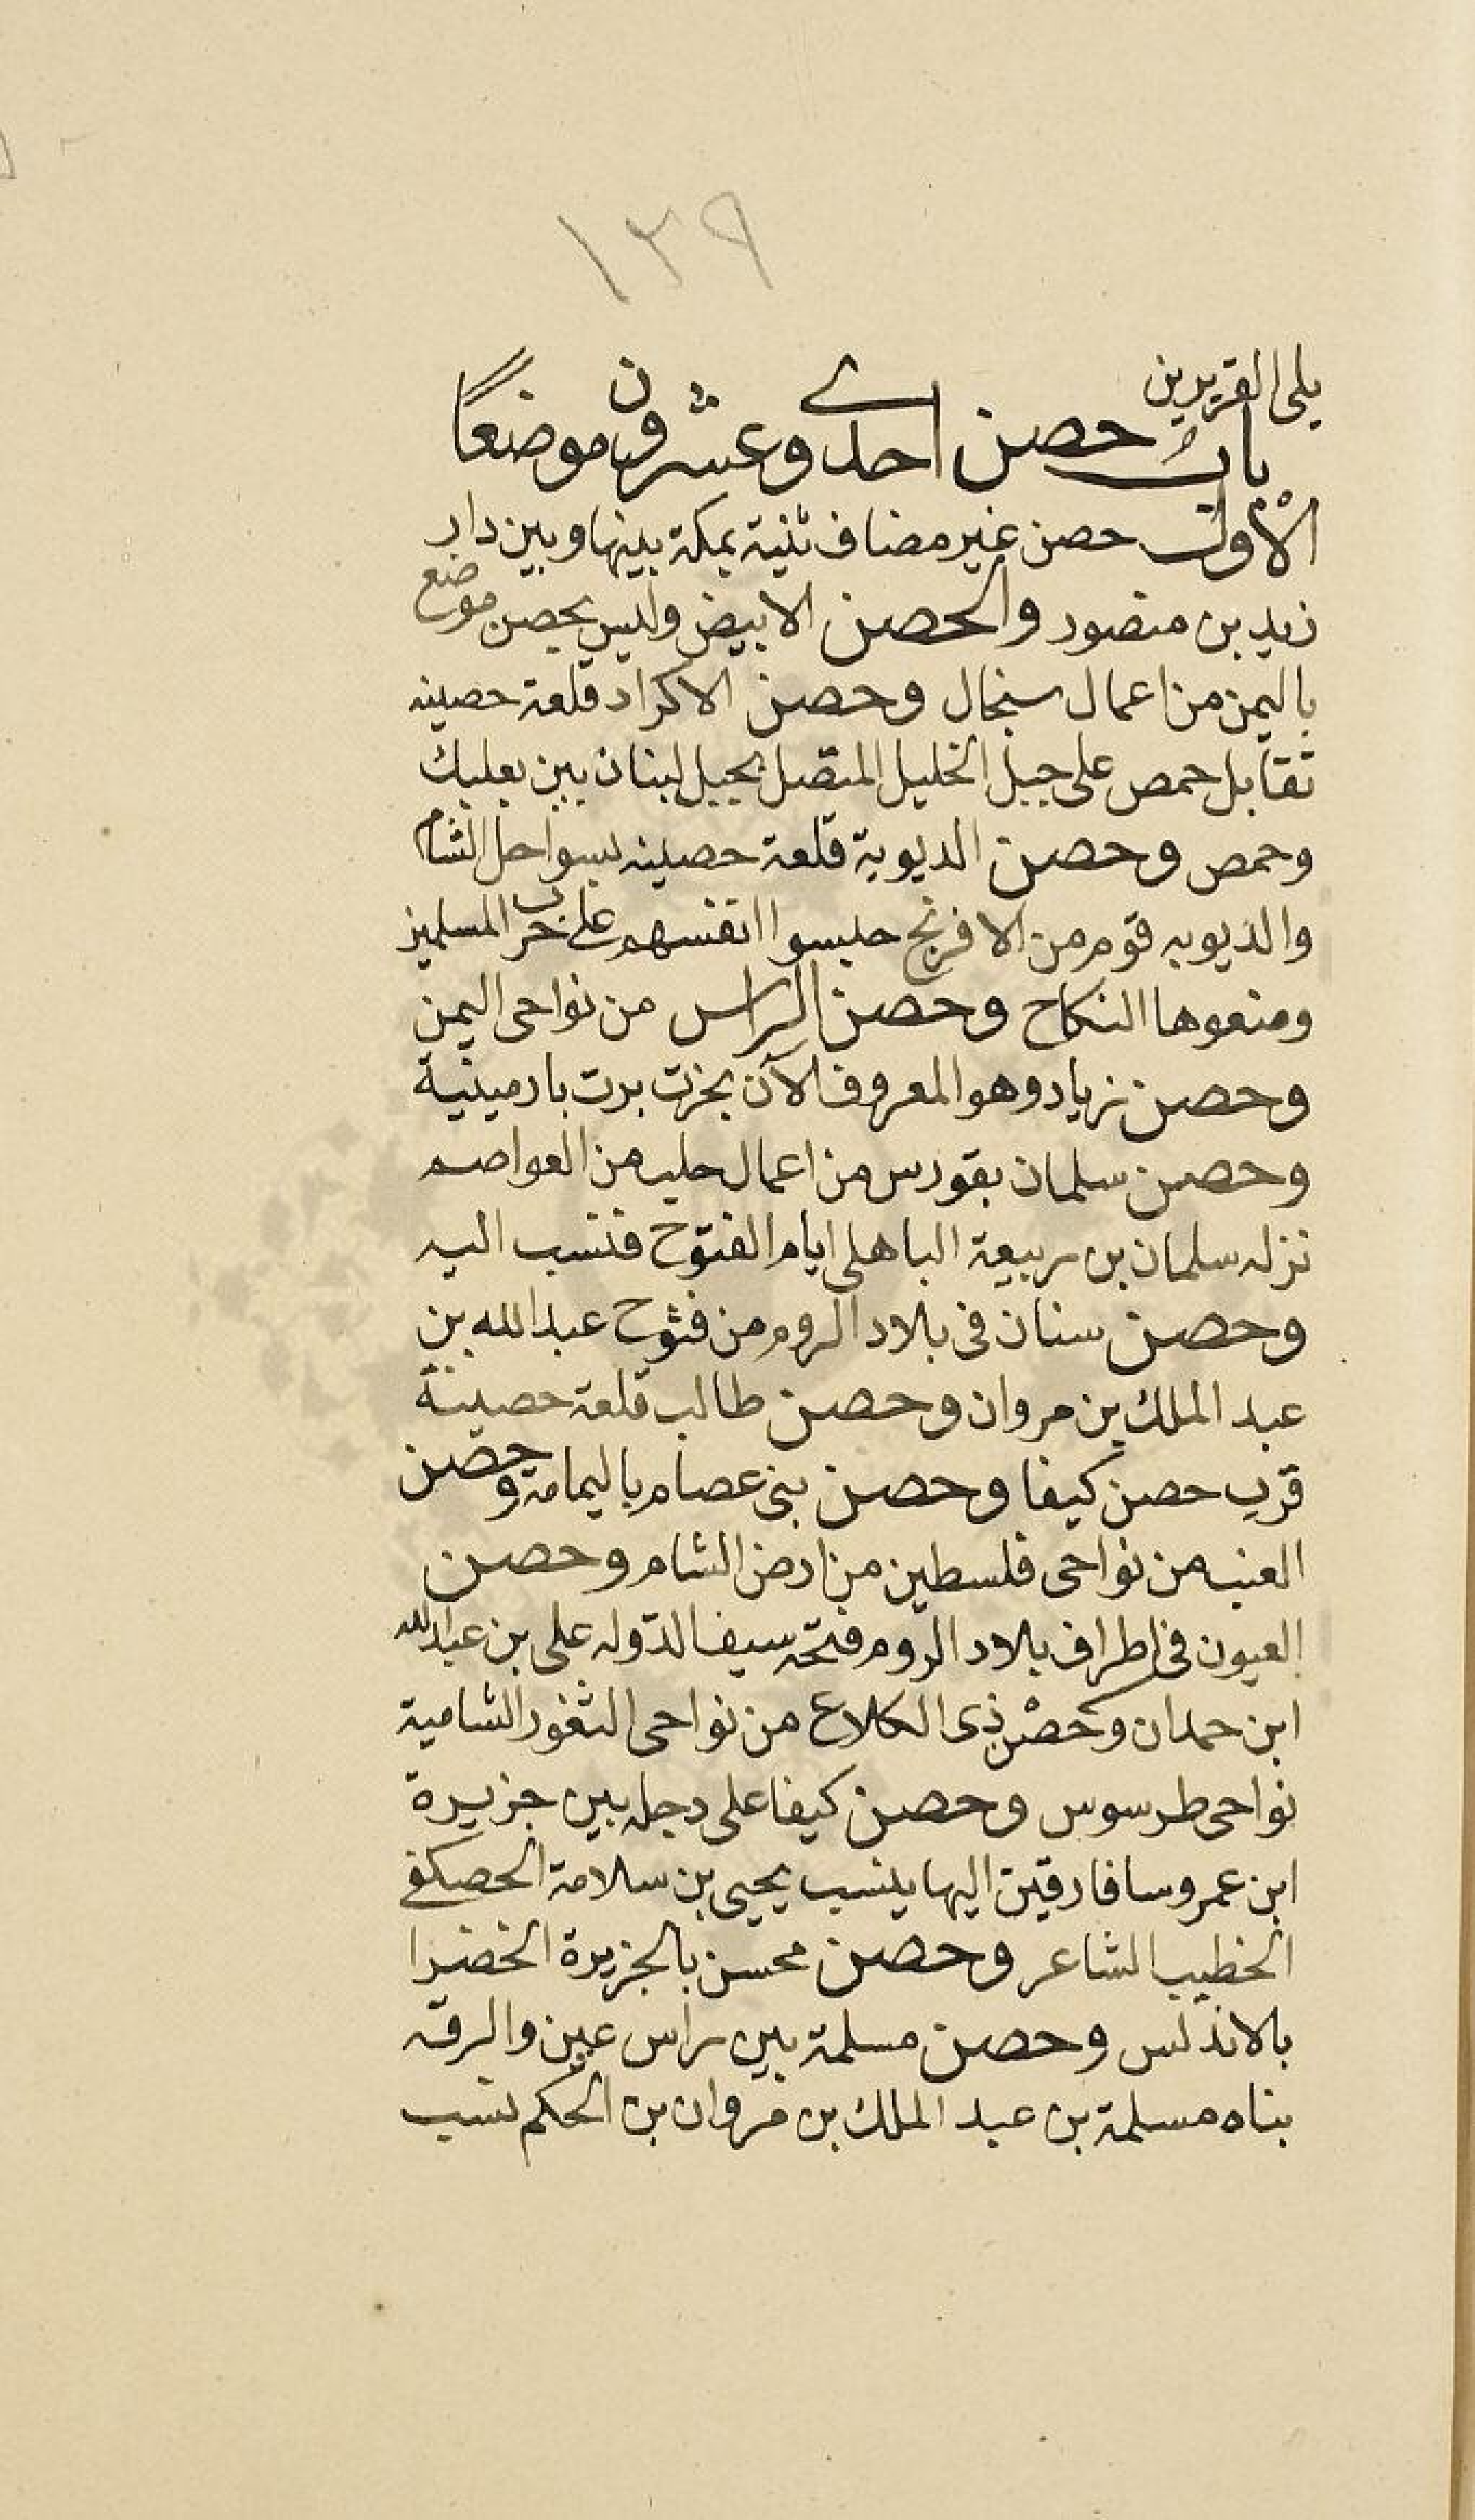 ١٣٩
يلى القريدين
باب حصن احدى وعشرون موضعًا
الأول حصن غير مضاف ثنية بمكة بينها وبين دار
زيد بن منصور والحصن الابيض وليس بحصن موضع
باليمن من اعمال سنجال وحصن الاكراد قلعة حصينه
تقابل حمص على جبل الخليل المتصل بجبل لبنان بين بعلبك
وحمص وحصن الديوية قلعة حصينه بسواحل الشام
والديويه قوم من الافرنج حبسوا انفسهم على حرب المسلمين
ومنعوها النكاح وحصن الراس من نواحى اليمن
وحصن زياد وهو المعروف الآن بخرت برت بارمينية
وحصن سلمان بقورس من اعمال حلب من العواصم
نزله سلمان بن ربيعة الباهلى ايام الفتوح فنسب اليه
وحصن سنان فى بلاد الروم من فتوح عبد الله بن
عبد الملك بن مروان وحصن طالب قلعة حصينة
قرب حصن كيفا وحصن بنى عصام باليمامة وحصن
العنب من نواحى فلسطين من ارض الشام وحصن
العيون فى اطراف بلاد الروم فتحه سيف الدّوله على بن عبد الله
ابن حمدان وحصن ذى الكلاع من نواحى الثغور الشامية
نواحى طرسوس وحصن كيفا على دجله بين جزيرة
ابن عمر وسافارقين اليها ينسب يحيى بن سلامة الحصكفى
الخطيب الشاعر وحصن محسن بالجزيرة الخضرا
بالاندلس وحصن مسلمة بين راس عين والرقه
بناه مسلمة بن عبد الملك بن مروان بن الحكم نسب